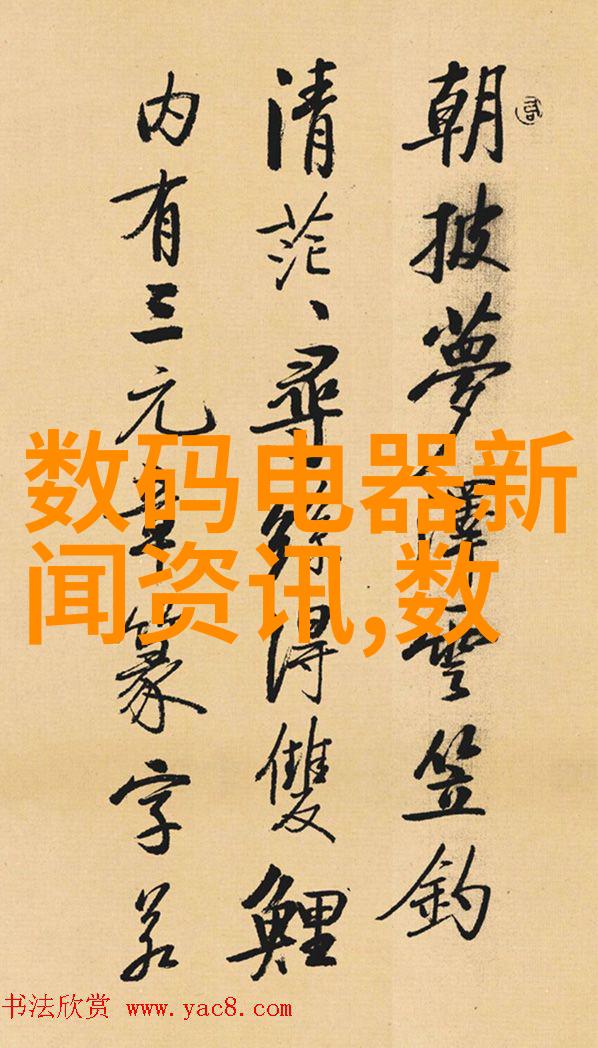 朝披夢澤雲笠釣
清茫、、尋絲得雙鯉
内有三元章篆字若
数码电器新
闻资讯,数
书法欣赏 www.yac8.com